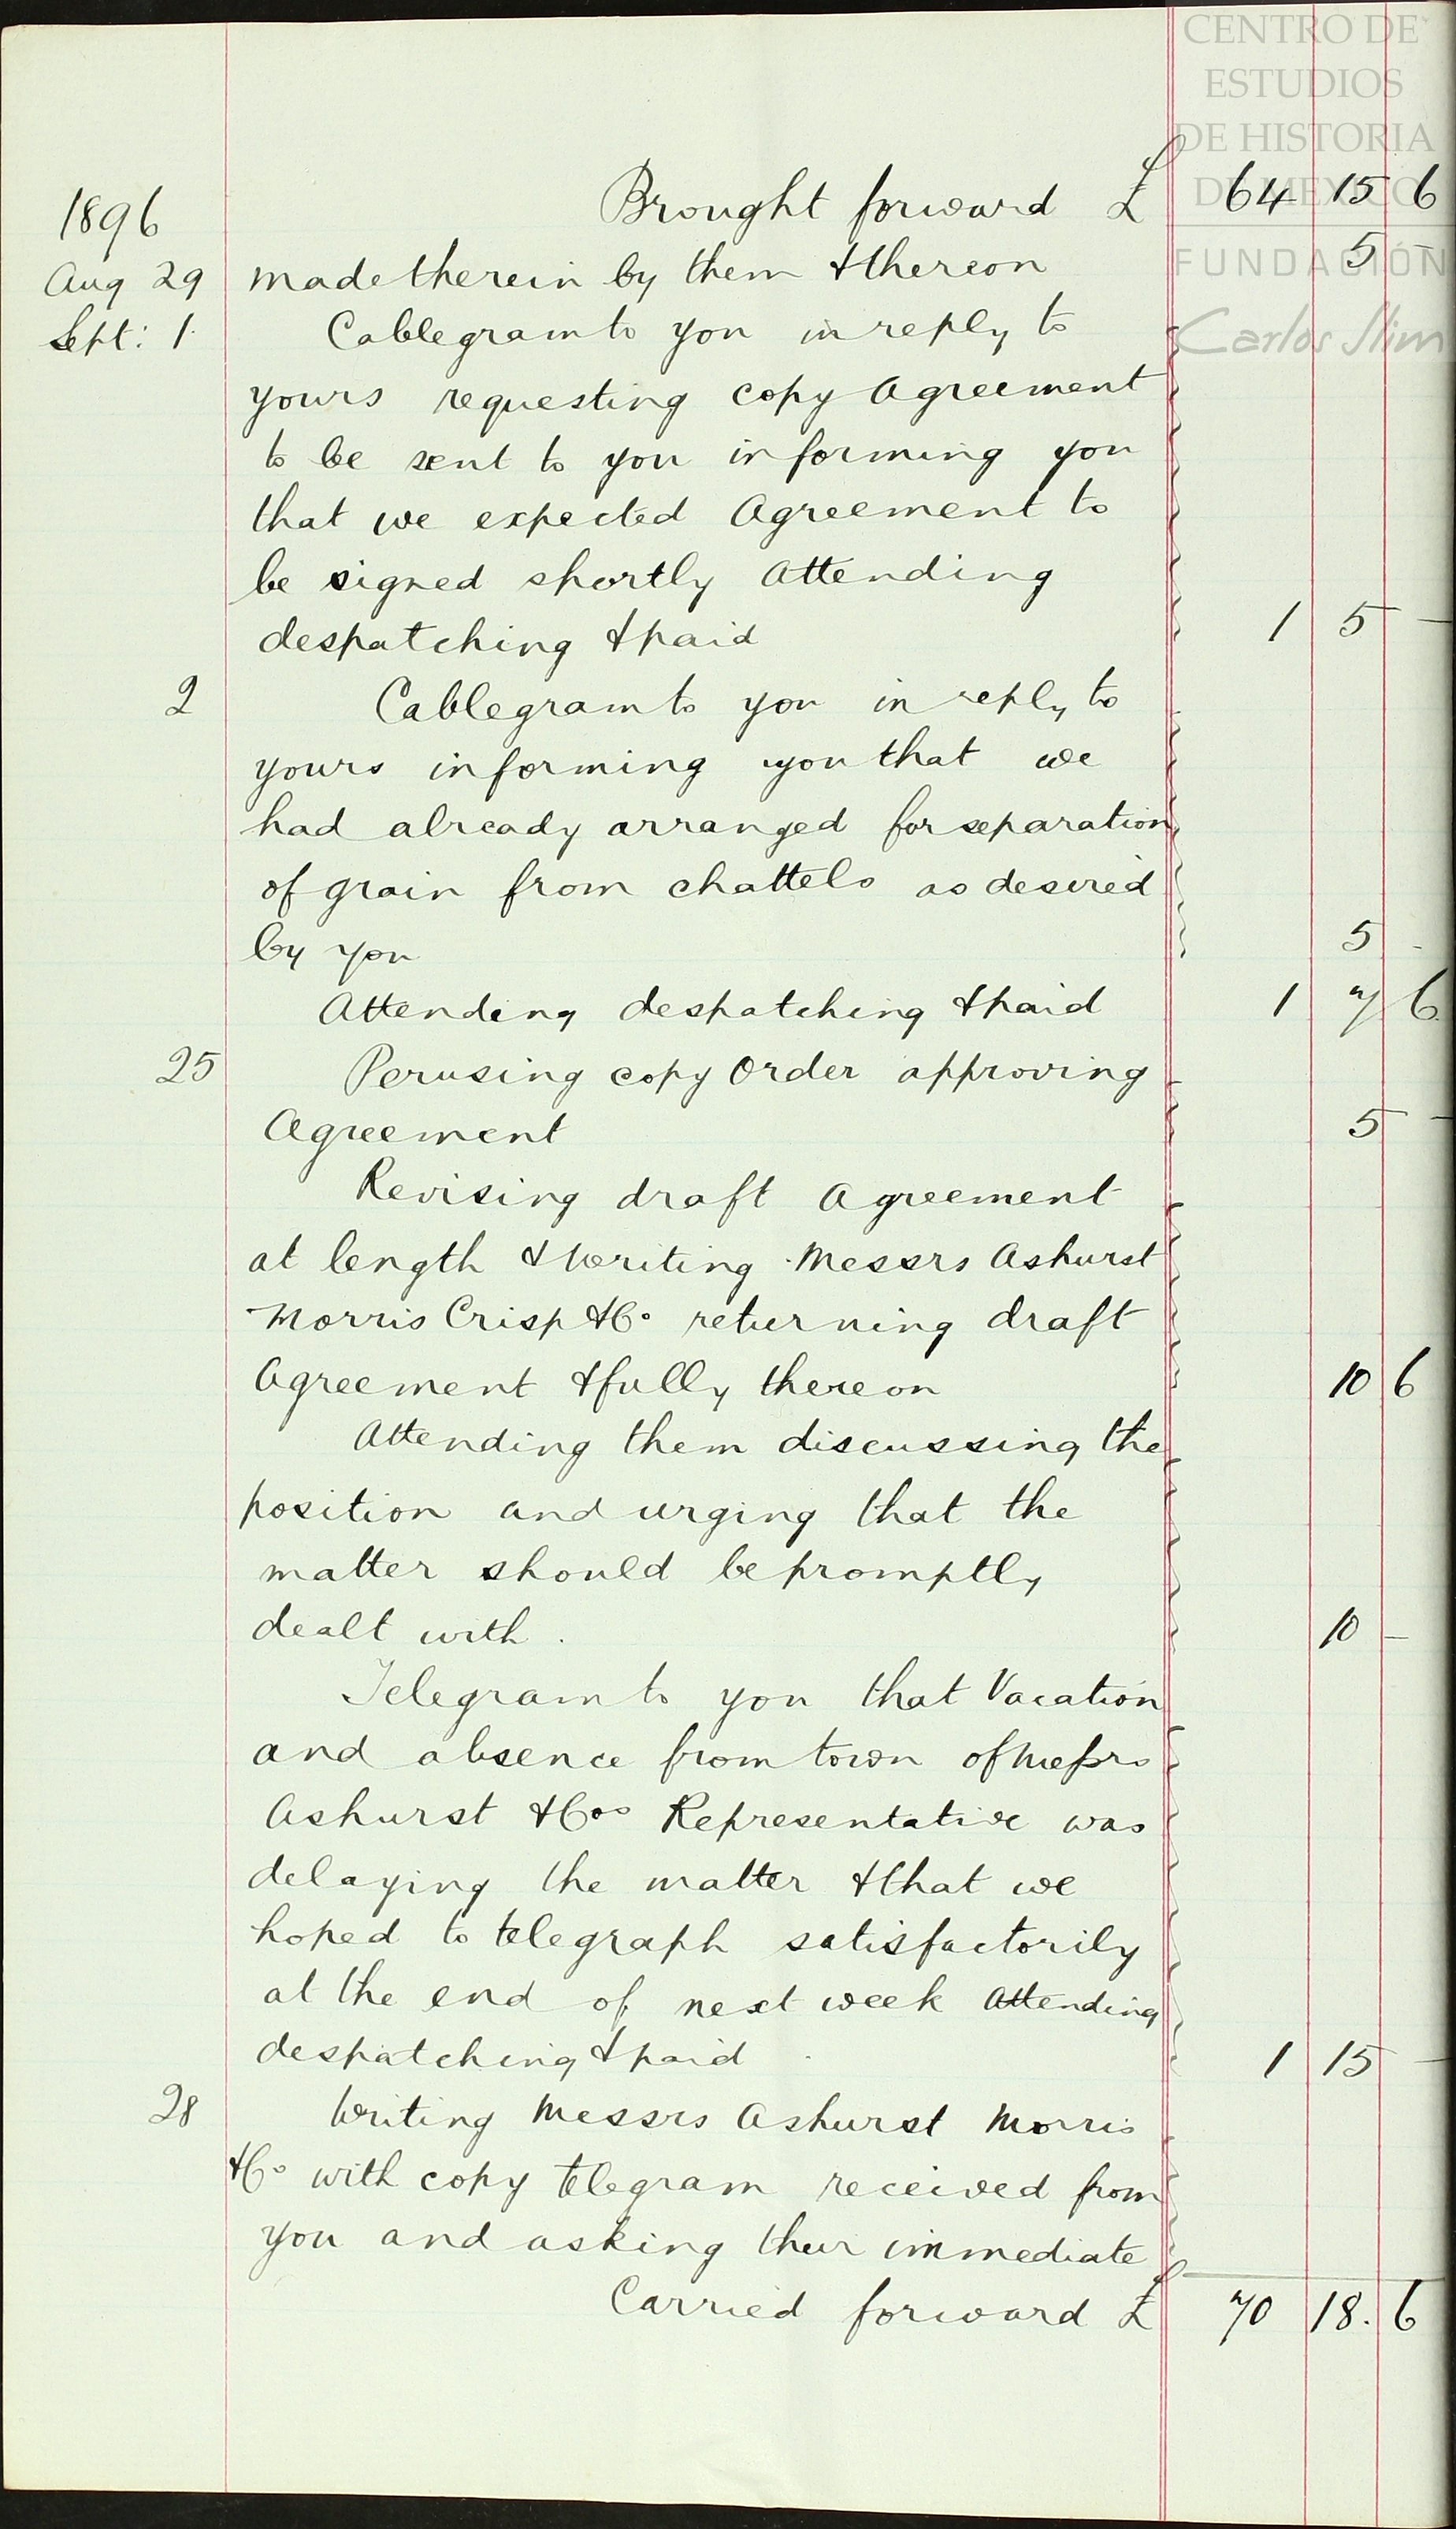 CENTRO DE
ESTUDIOS
DE HISTORIA
DE MEXICO
FUNDACIÓN
Carlos Slim
1896 Brought forward £ 64 15 6
Aug 29 made therein by them & thereon 5 -
Sept: 1. Cablegram to you in reply to
yours requesting copy Agreement
to be sent to you informing you
that we expected Agreement to
be signed shortly Attending
despatching & paid 1 5 -
2 Cablegram to you in reply to
yours informing you that we
had already arranged for separation
of grain from chattels as desired
by you 5 -
Attending despatching & paid 1 7 6
25 Perusing copy Order approving
Agreement 5 -
Revising draft Agreement
at length & writing Messrs Ashurst
Morris Crisp & Co returning draft
Agreement & fully thereon 10 6
Attending them discussing the
position and urging that the
matter should be promptly
dealt with. 10 -
Telegram to you that Vacation
and absence from town of Messrs
Ashurst & Cos Representative was
delaying the matter & that we
hoped to telegraph satisfactorily
at the end of next week Attending
despatching & paid 1 15 -
28 Writing Messrs Ashurst Morris
& Co with copy telegram received from
you and asking their immediate
Carried forward £ 70 18. 6